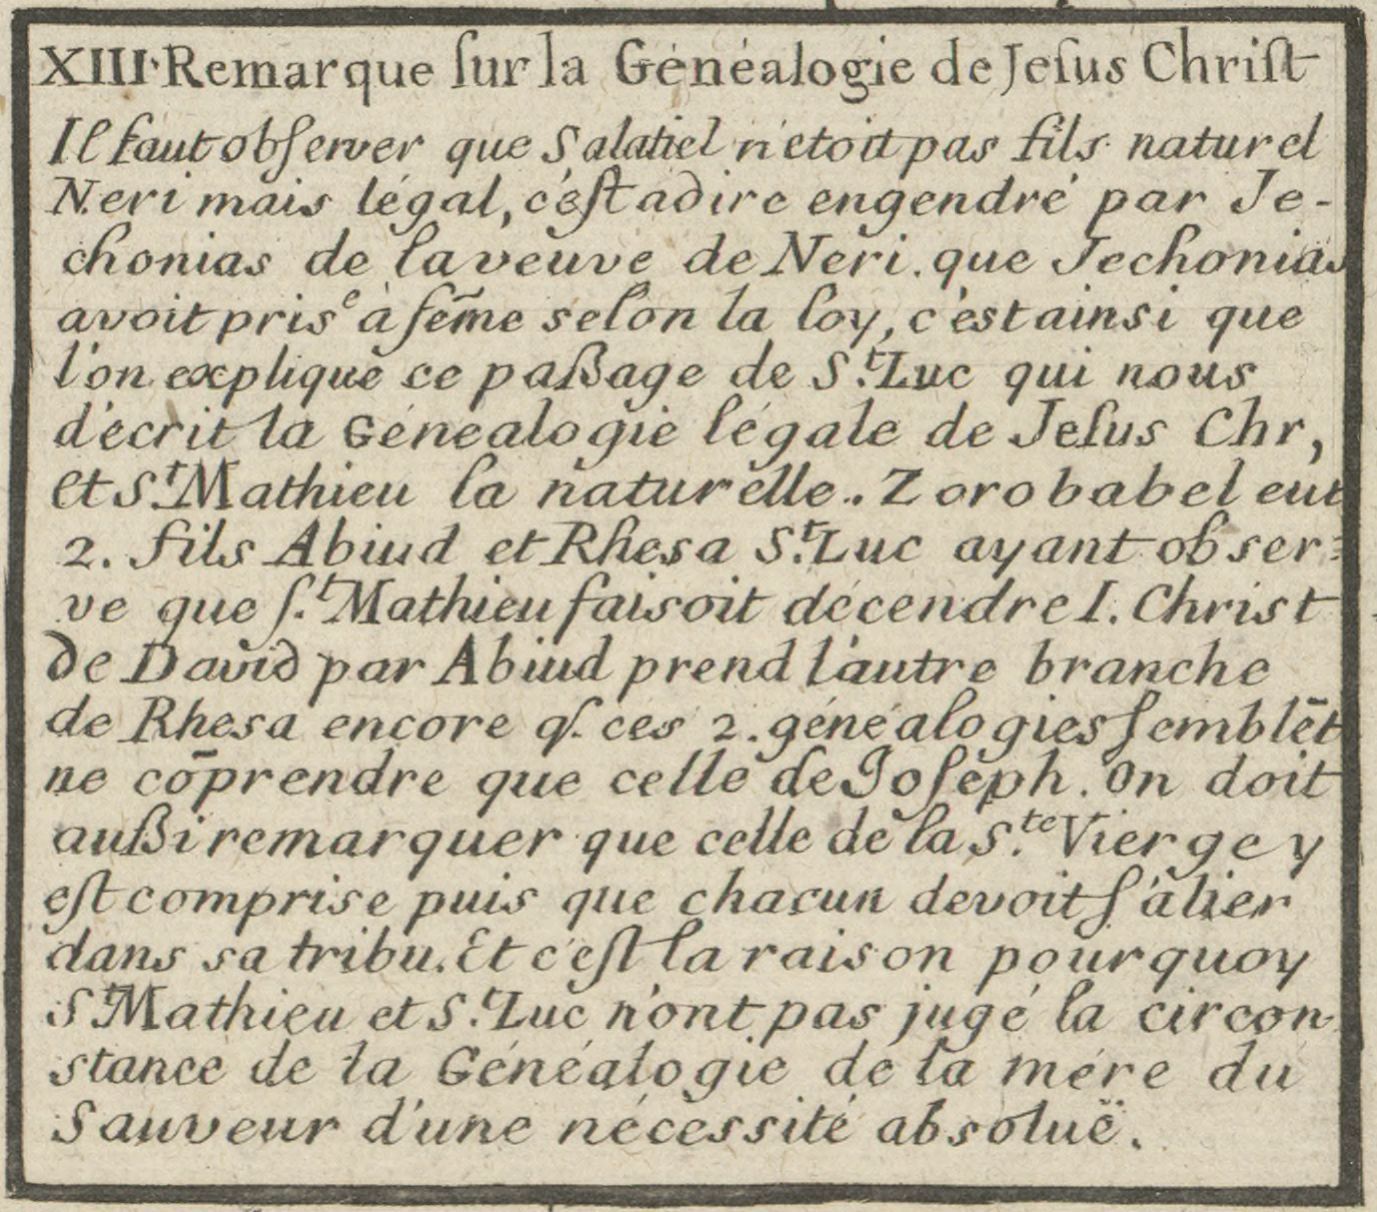 XIII. Remarque ſur la Généalogie de Jeſus Chriſt
Il faut obſerver que Salatiel n'etoit pas fils naturel
Neri mais légal, c'eſt a dire engendré par Je-
chonias de la veuve de Neri. que Jechonias
avoit prise à fēme selon la loy, c'est ainsi que
l'on explique ce paßage de S.t Luc qui nous
décrit la Généalogie légale de Jeſus Chr,
et S.t Mathieu la naturelle. Zorobabel eut
2. fils Abiud et Rhesa S.t Luc ayant obser=
ve que ſ.t Mathieu faisoit décendre I. Christ
de David par Abiud prend l'autre branche
de Rhesa encore q. ces 2. généalogies ſemblēt
ne cōprendre que celle de Joſeph. On doit
außi remarquer que celle de la S.te Vierge y
eſt comprise puis que chacun devoit ſ'alier
dans sa tribu. Et c'eſt la raison pourquoy
S.t Mathieu et S.t Luc n'ont pas jugé la circon-
stance de la Généalogie de la mére du
Sauveur d'une nécessité absoluë.